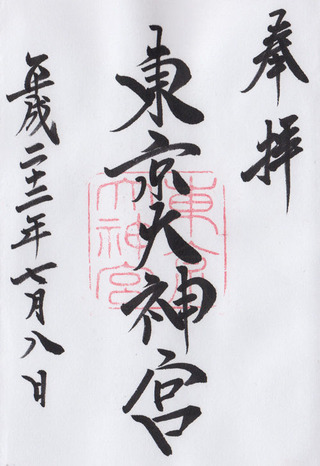 奉拝
東京大神宮
東京大神宮
平成二十二年七月八日